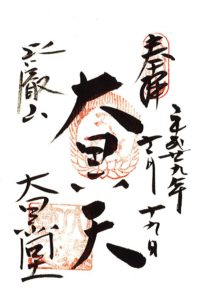 奉拝
平成廿九年
十月十九日
大黒天
比叡山
大黒堂